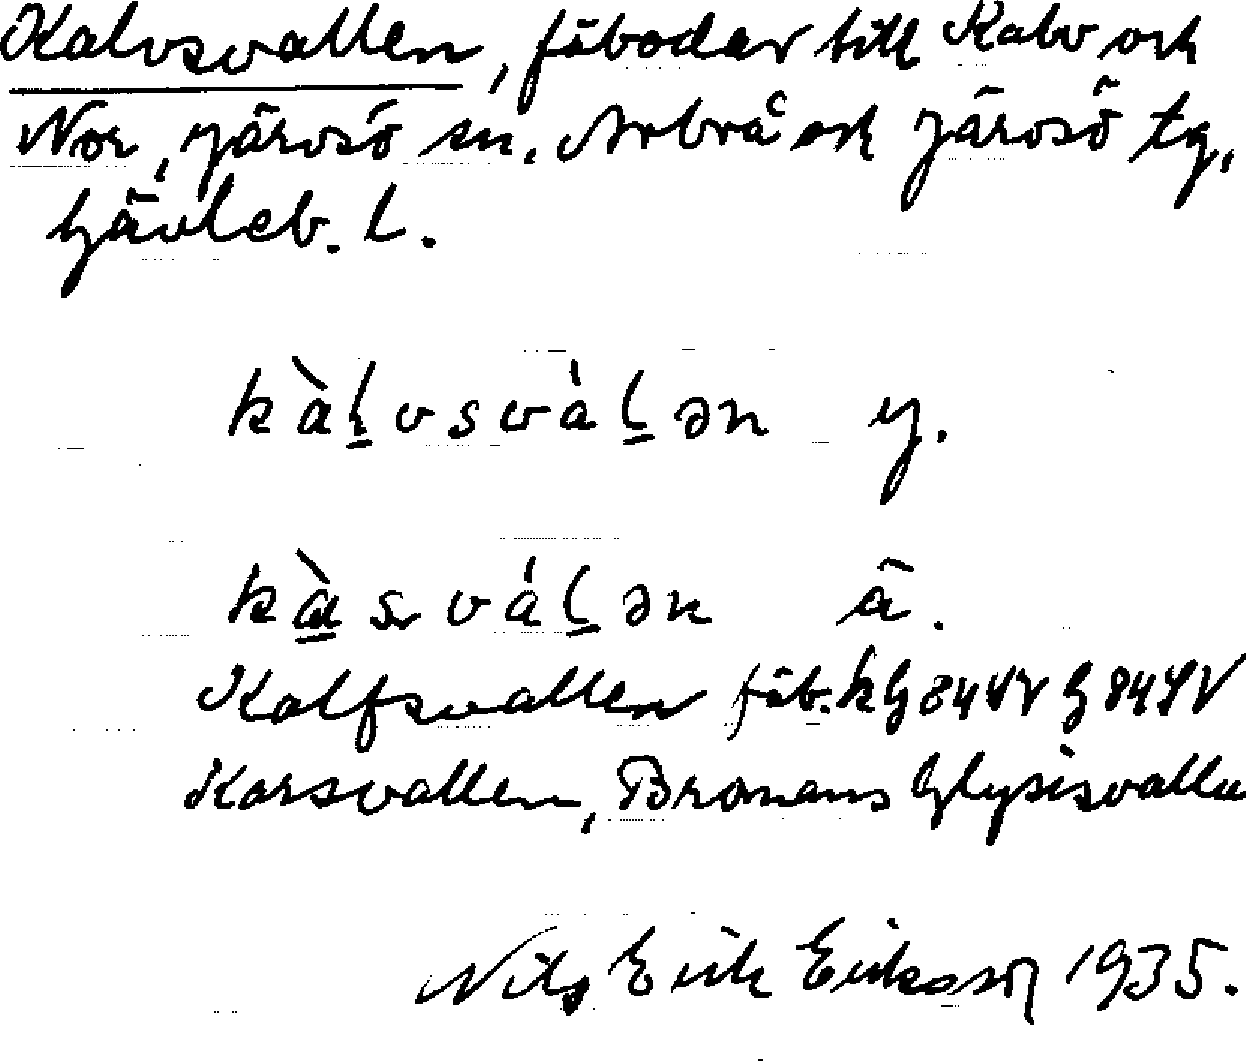 Kalvsvallen, fäboder till Kalv och
Nor, Järvsö sn. Arbrå och Järvsö tg,
Gävleb. l.
kàḻvsvàḻən y.
kàsvàḻən ä.
Kalfsvallen fäb. kG 84 G 84
Karsvallen, Bromans Glysisvallu
Nils Erik Eriksson 1935.